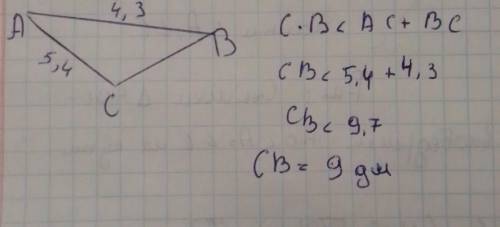 A
4,3
B
5,4
C
C·B < AC + BC
CB < 5,4 + 4,3
CB < 9,7
CB = 9 дм